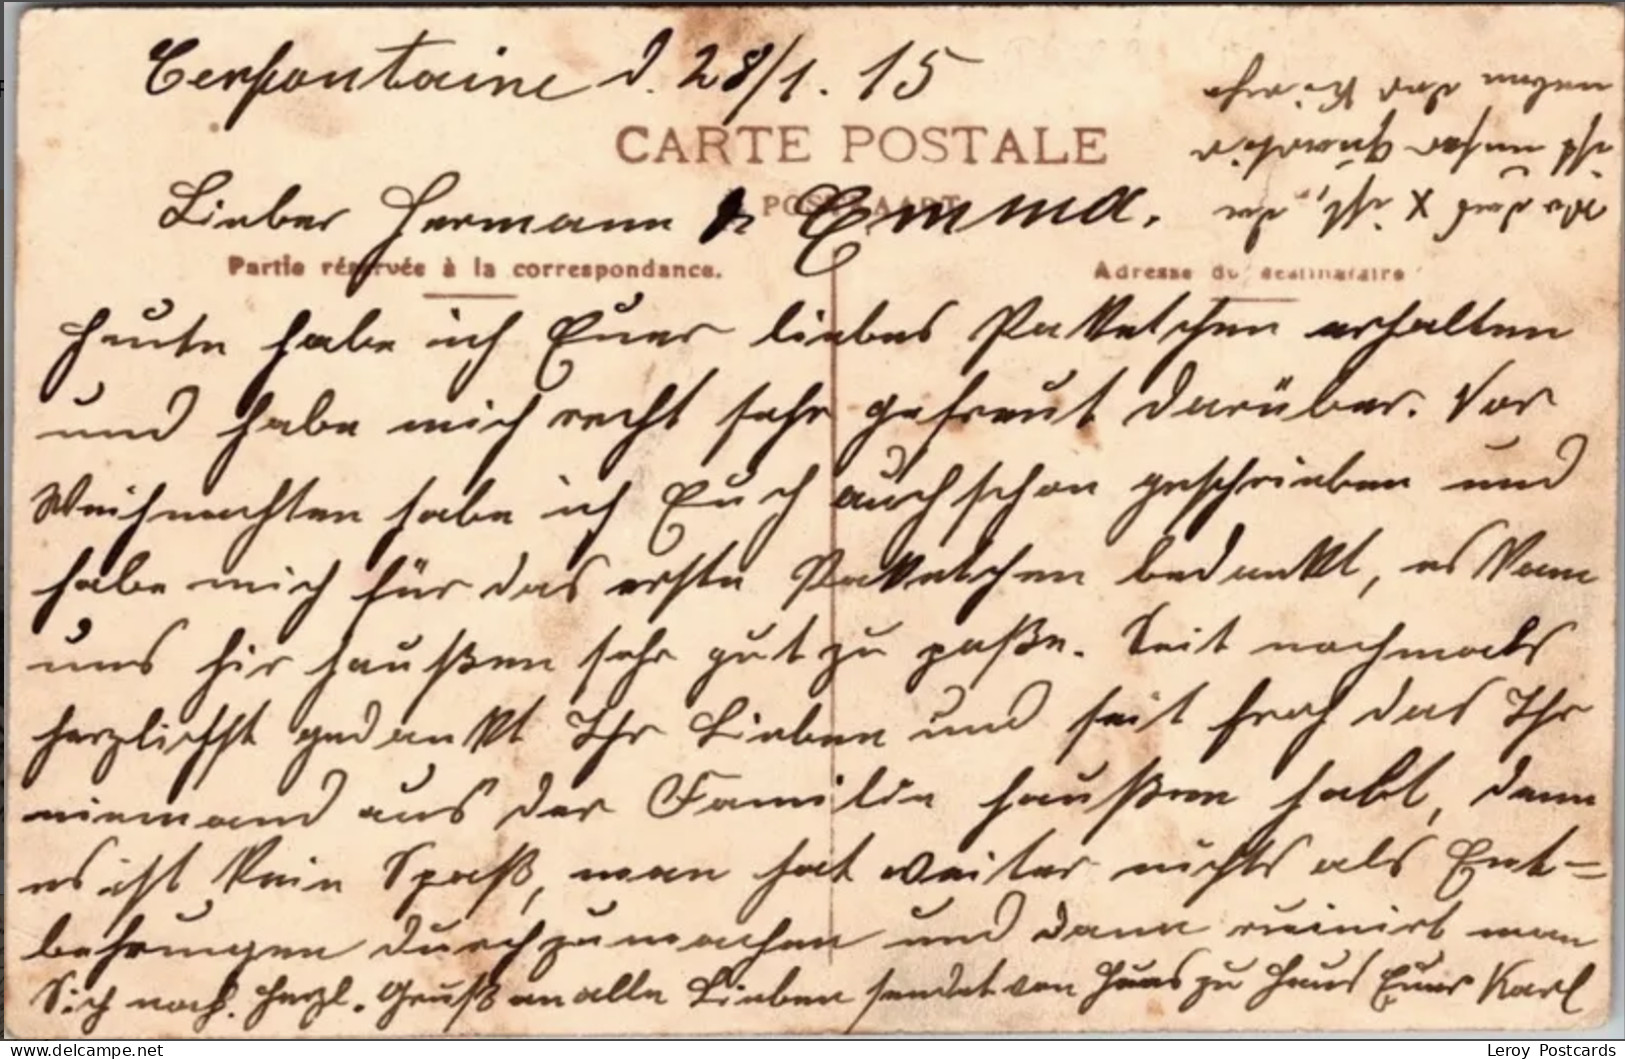 Cerfontaine d. 28/1. 15
CARTE POSTALE
POSTKAART
Lieber Hermann & Emma.
Partie réservée à la correspondance.
Adresse du destinataire
Heute habe ich Euer liebes Paketchen erhalten
und habe mich recht sehr gefreut darüber. Vor
Weihnachten habe ich Euch auch schon geschrieben und
habe mich für das erste Paketchen bedankt, es kam
uns hir haußen sehr gut zu paße. Seit nochmals
herzlichst gedankt Ihr Lieben und seit froh das Ihr
niemand aus der Familie haußen habt, denn
es ist kein Spaß, man hat weiter nichts als Ent=
behrungen durchzumachen und dann ruinirt man
Sich noch. Herzl. Gruß an alle Lieben sendet von Haus zu Haus Euer Karl
Wo das X ist, da
ist unser Quartir
neben der Kirche
Leroy Postcards